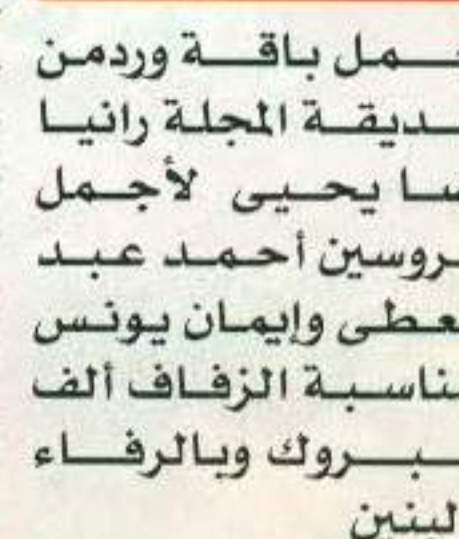 ـمل باقة وردمن
ـديقة المجلة رانيا
ـا يحيى لأجمل
ـروسين أحمد عبد
ـعطى وإيمان يونس
ـناسبة الزفاف ألف
ـبروك وبالرفاء
ـلبنين